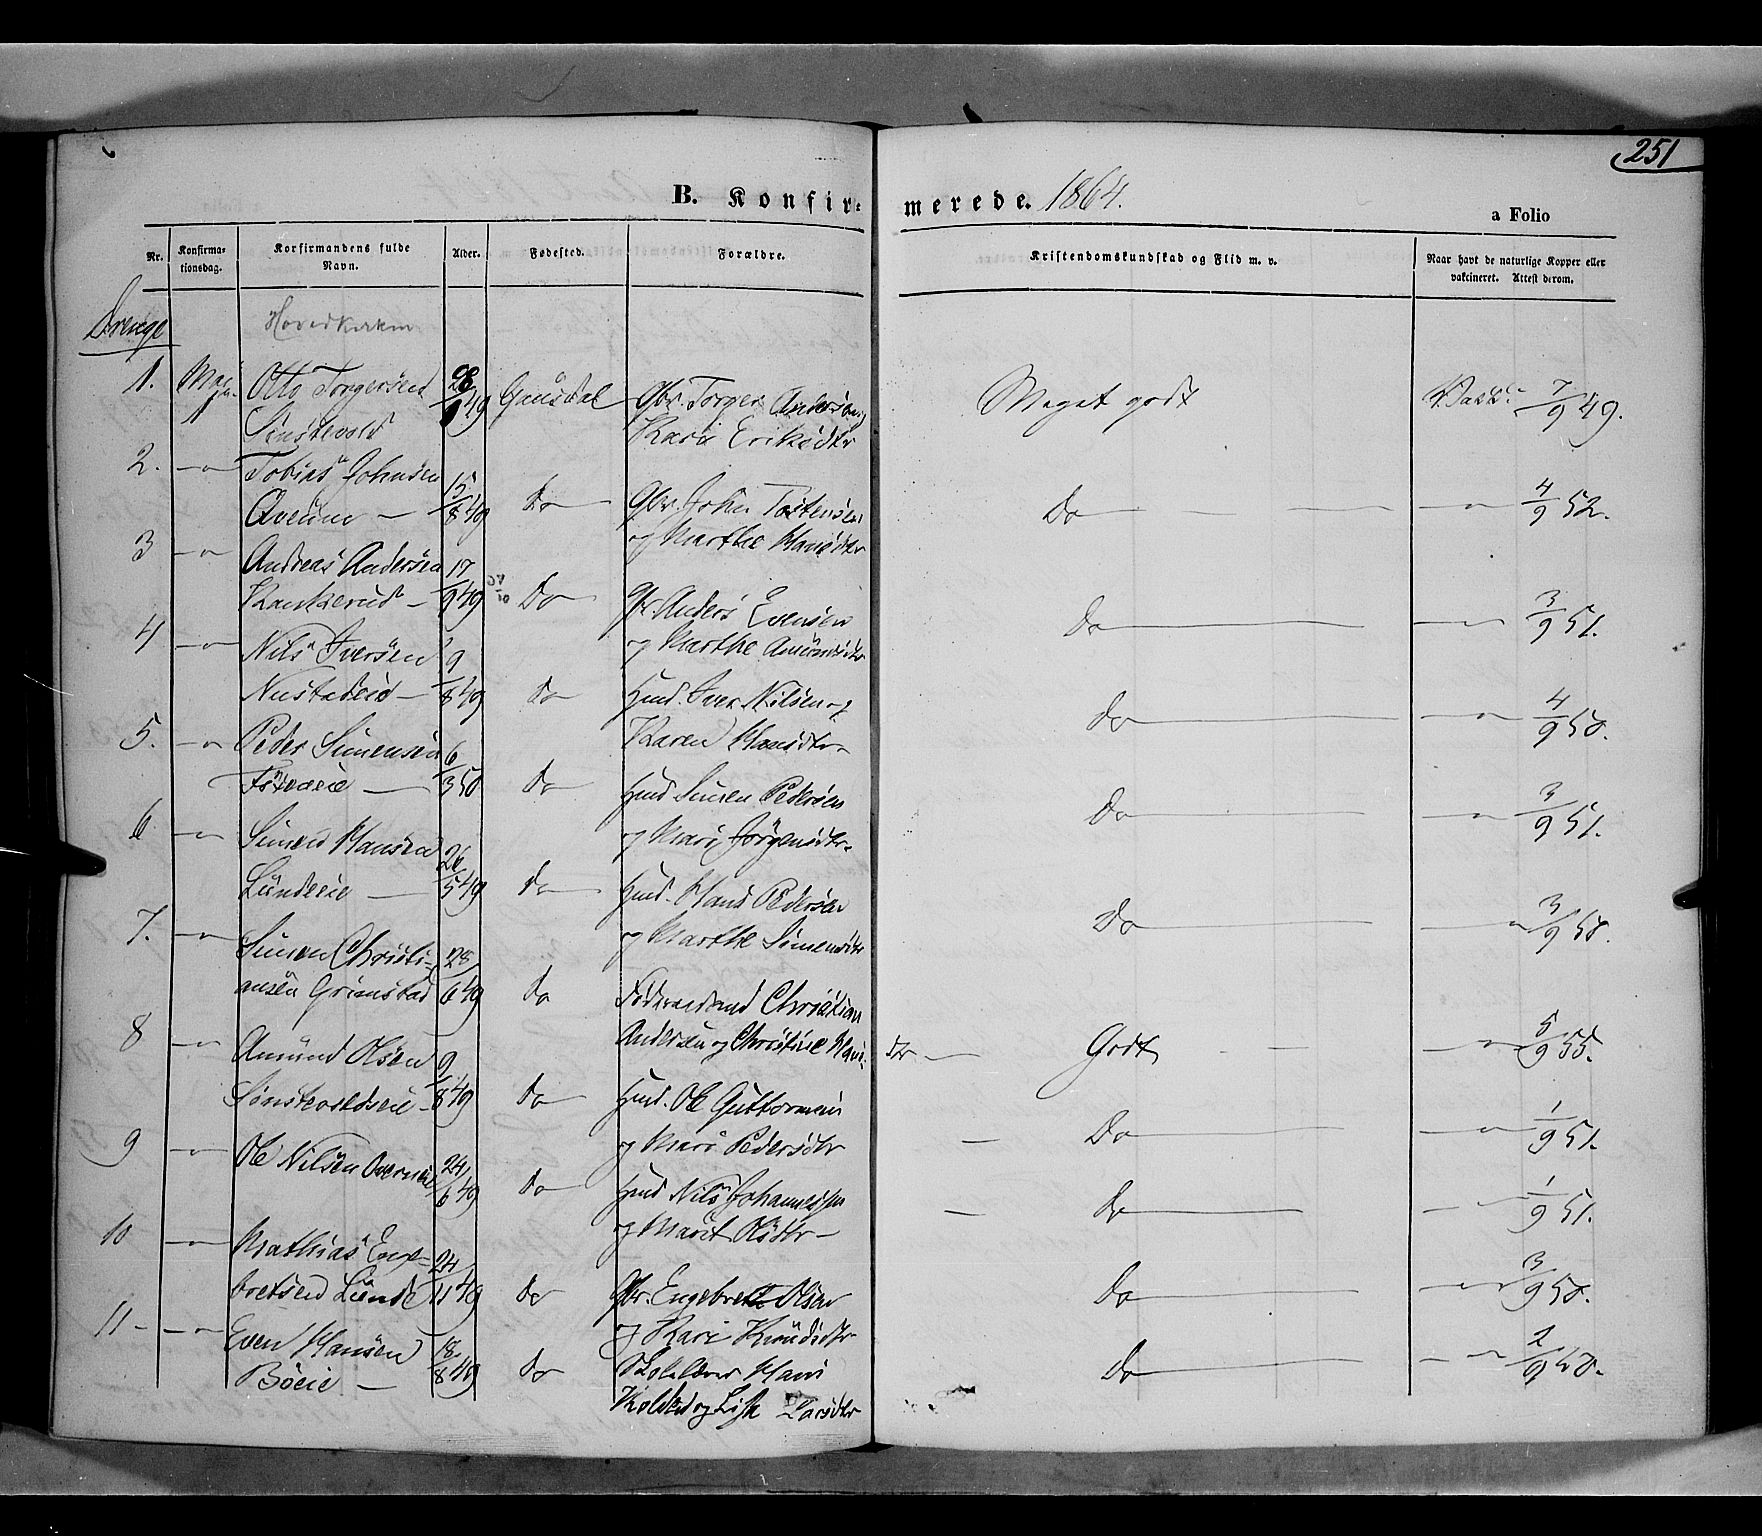 251
B. Konfirmerede. 1864.
a Folio
Nr. Konfirmationsdag. Korfirmandens fulde Navn. Alder. Fødested. Forældre. Kristendomskundskab og Flid m. v. Naar havt de naturlige Kopper eller vakcineret. Attest derom.
Drenge Hovedkirken
1. Otto Torgersen 28 Gausdal Gbr. Torger Andersen Meget godt Vacc. 7/9 49.
9 49 Kari Eriksdtr
2. -"- Tobias Johnsen 15 Do Gbr. John Tostensen Do -"- 4/9 52.
8 49 og Marthe Hansdtr
3 -"- Andreas Andersen 17 Do Gbr. Anders Evensen Do -"- 3/9 51.
Kankerud 9 49 og Marthe Amundsdtr
4 -"- Nils Iversen 9 do Hmd. Iver Nilsen og Do -"- 4/9 50.
8 49 Karen Hansdtr
5. -"- Peder Simensen 6 Do Hmd Simen Pedersen Do -"- 3/9 51.
3 50 og Mari Jörgensdtr
6 -"- Simen Hansen 26 do Hmd. Hans Pedersen Do -"- 3/9 50.
Lundeeie 5 49 og Marthe Simensdtr
7. -"- Simen Christi- 28 do Christian Godt -"- 5/9 55.
ansen Grimstad 6 49 Andersen og Christine Hans- dtr
8 -"- Amund Olsen 9 Do Hmd. Ole Guttormsen Do -"- 1/9 51.
8 49 og Mari Pedersdtr
9 -"- Ole Nilsen 24 Do Hmd Nils Johannessen Do -"- 1/9 51.
6 49 og Marit Olsdtr
10 -"- Mathias Enge- 24 do Gbr. Engebret Olsen Do -"- 3/9 50.
bretsen Lunde 11 49 og Kari Knudsdtr
11 -"- Even Hansen 18 do Skolelærer Hans Do -"- 2/9 50.
Böeie 8 49 og Lise Larsdtr